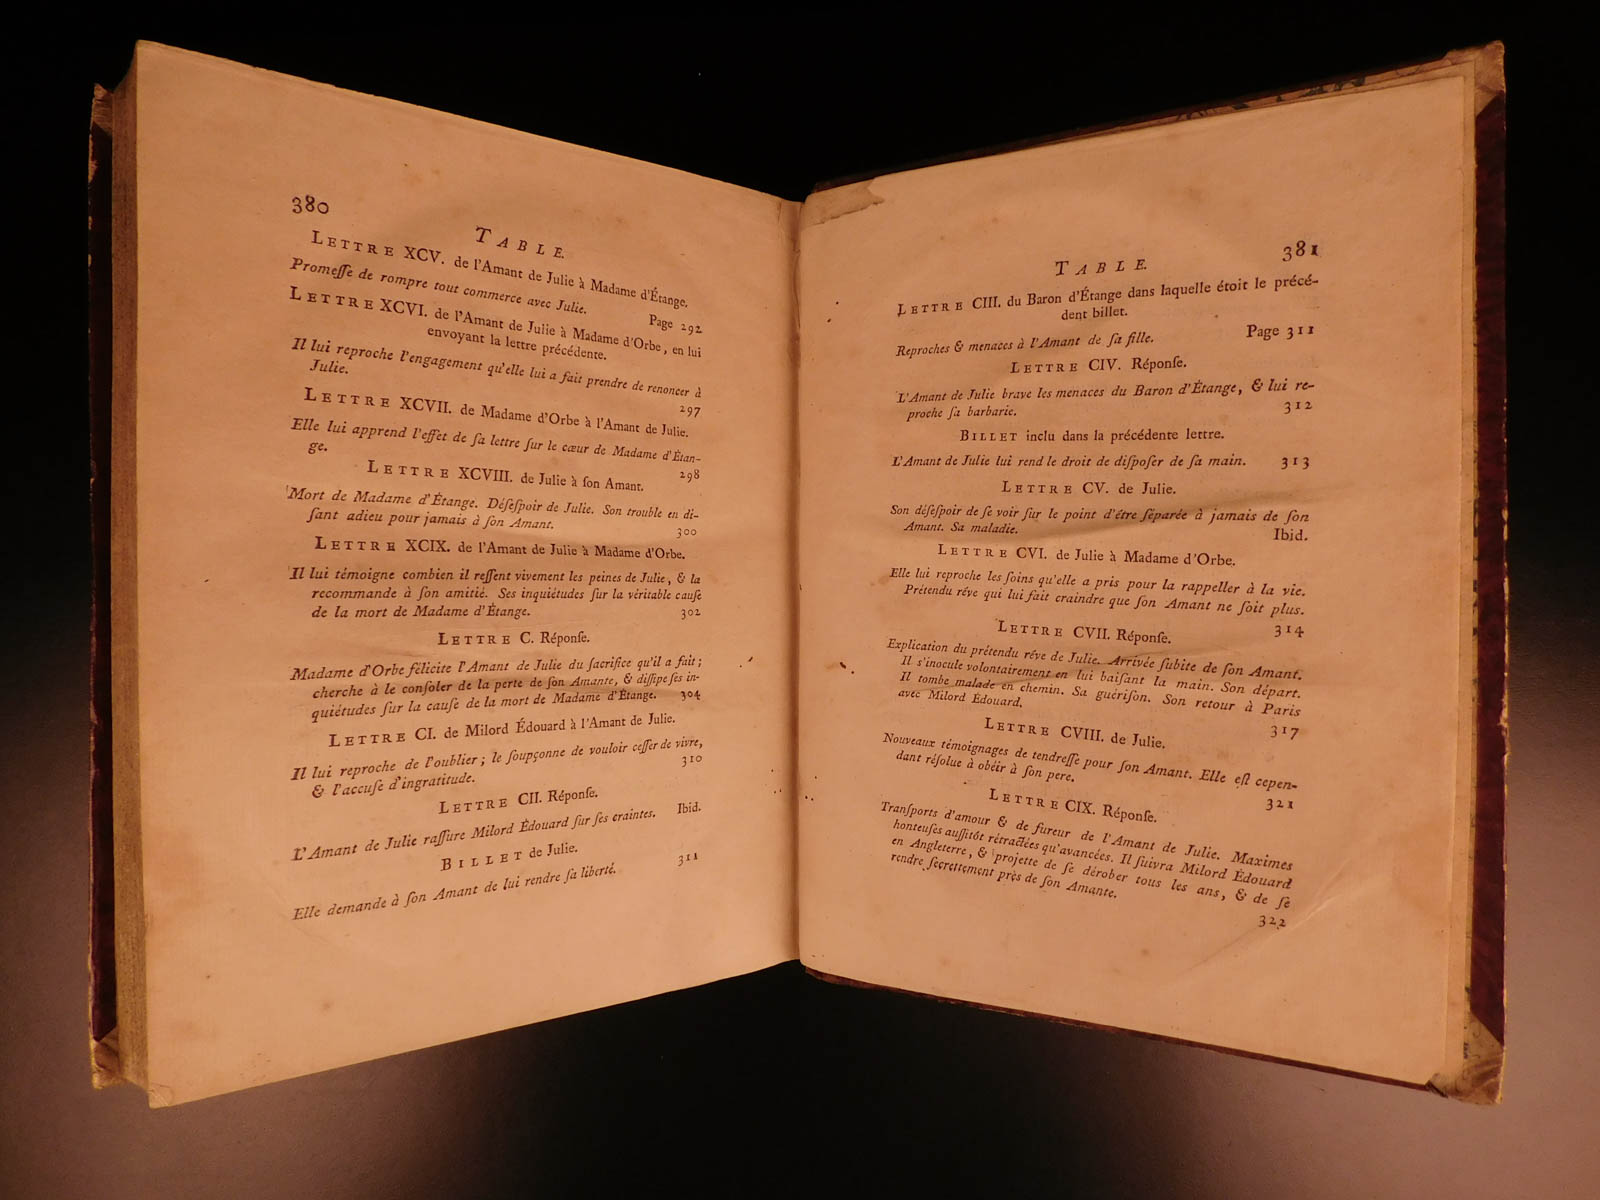 380
TABLE.
LETTRE XCV. de l'Amant de Julie à Madame d'Étange.
Promeſſe de rompre tout commerce avec Julie. Page 292
LETTRE XCVI. de l'Amant de Julie à Madame d'Orbe, en lui
envoyant la lettre précédente.
Il lui reproche l'engagement qu'elle lui a fait prendre de renoncer à
Julie. 297
LETTRE XCVII. de Madame d'Orbe à l'Amant de Julie.
Elle lui apprend l'effet de ſa lettre ſur le cœur de Madame d'Étan-
ge. 298
LETTRE XCVIII. de Julie à ſon Amant.
Mort de Madame d'Étange. Déſeſpoir de Julie. Son trouble en di-
ſant adieu pour jamais à ſon Amant. 300
LETTRE XCIX. de l'Amant de Julie à Madame d'Orbe.
Il lui témoigne combien il reſſent vivement les peines de Julie, & la
recommande à ſon amitié. Ses inquiétudes ſur la véritable cauſe
de la mort de Madame d'Étange. 302
LETTRE C. Réponſe.
Madame d'Orbe félicite l'Amant de Julie du ſacrifice qu'il a fait ;
cherche à le conſoler de la perte de ſon Amante, & diſſipe ſes in-
quiétudes ſur la cauſe de la mort de Madame d'Étange. 304
LETTRE CI. de Milord Édouard à l'Amant de Julie.
Il lui reproche de l'oublier ; le ſoupçonne de vouloir ceſſer de vivre,
& l'accuſe d'ingratitude. 310
LETTRE CII. Réponſe.
L'Amant de Julie raſſure Milord Édouard ſur ſes craintes. Ibid.
BILLET de Julie.
Elle demande à ſon Amant de lui rendre ſa liberté. 311
381
TABLE.
LETTRE CIII. du Baron d'Étange dans laquelle étoit le précé-
dent billet.
Reproches & menaces à l'Amant de ſa fille. Page 311
LETTRE CIV. Réponſe.
L'Amant de Julie brave les menaces du Baron d'Étange, & lui re-
proche ſa barbarie. 312
BILLET inclu dans la précédente lettre.
L'Amant de Julie lui rend le droit de diſpoſer de ſa main. 313
LETTRE CV. de Julie.
Son déſeſpoir de ſe voir ſur le point d'être ſéparée à jamais de ſon
Amant. Sa maladie. Ibid.
LETTRE CVI. de Julie à Madame d'Orbe.
Elle lui reproche les ſoins qu'elle a pris pour la rappeller à la vie.
Prétendu rêve qui lui fait craindre que ſon Amant ne ſoit plus.
314
LETTRE CVII. Réponſe.
Explication du prétendu rêve de Julie. Arrivée ſubite de ſon Amant.
Il s'inocule volontairement en lui baiſant la main. Son départ.
Il tombe malade en chemin. Sa guériſon. Son retour à Paris
avec Milord Édouard. 317
LETTRE CVIII. de Julie.
Nouveaux témoignages de tendreſſe pour ſon Amant. Elle eſt cepen-
dant réſolue à obéir à ſon pere. 321
LETTRE CIX. Réponſe.
Tranſports d'amour & de fureur de l'Amant de Julie. Maximes
honteuſes auſſitôt rétractées qu'avancées. Il ſuivra Milord Édouard
en Angleterre, & projette de ſe dérober tous les ans, & de ſe
rendre ſecrettement près de ſon Amante. 322